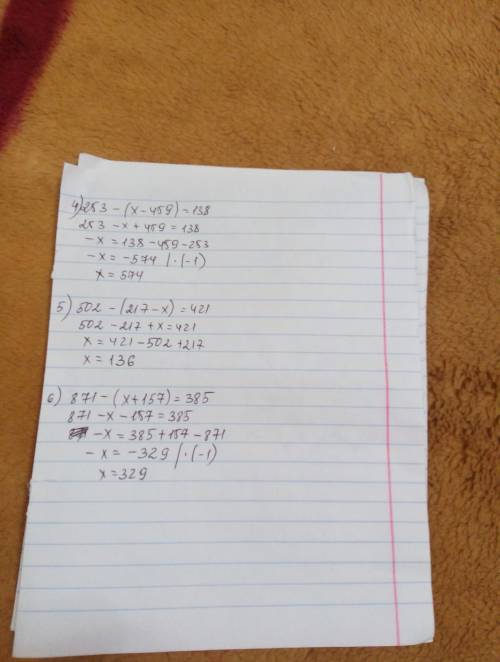 4) 253 - (x - 459) = 138
253 - x + 459 = 138
-x = 138 - 459 - 253
-x = -574 | · (-1)
x = 574
5) 502 - (217 - x) = 421
502 - 217 + x = 421
x = 421 - 502 + 217
x = 136
6) 871 - (x + 157) = 385
871 - x - 157 = 385
-x = 385 + 157 - 871
-x = -329 | · (-1)
x = 329